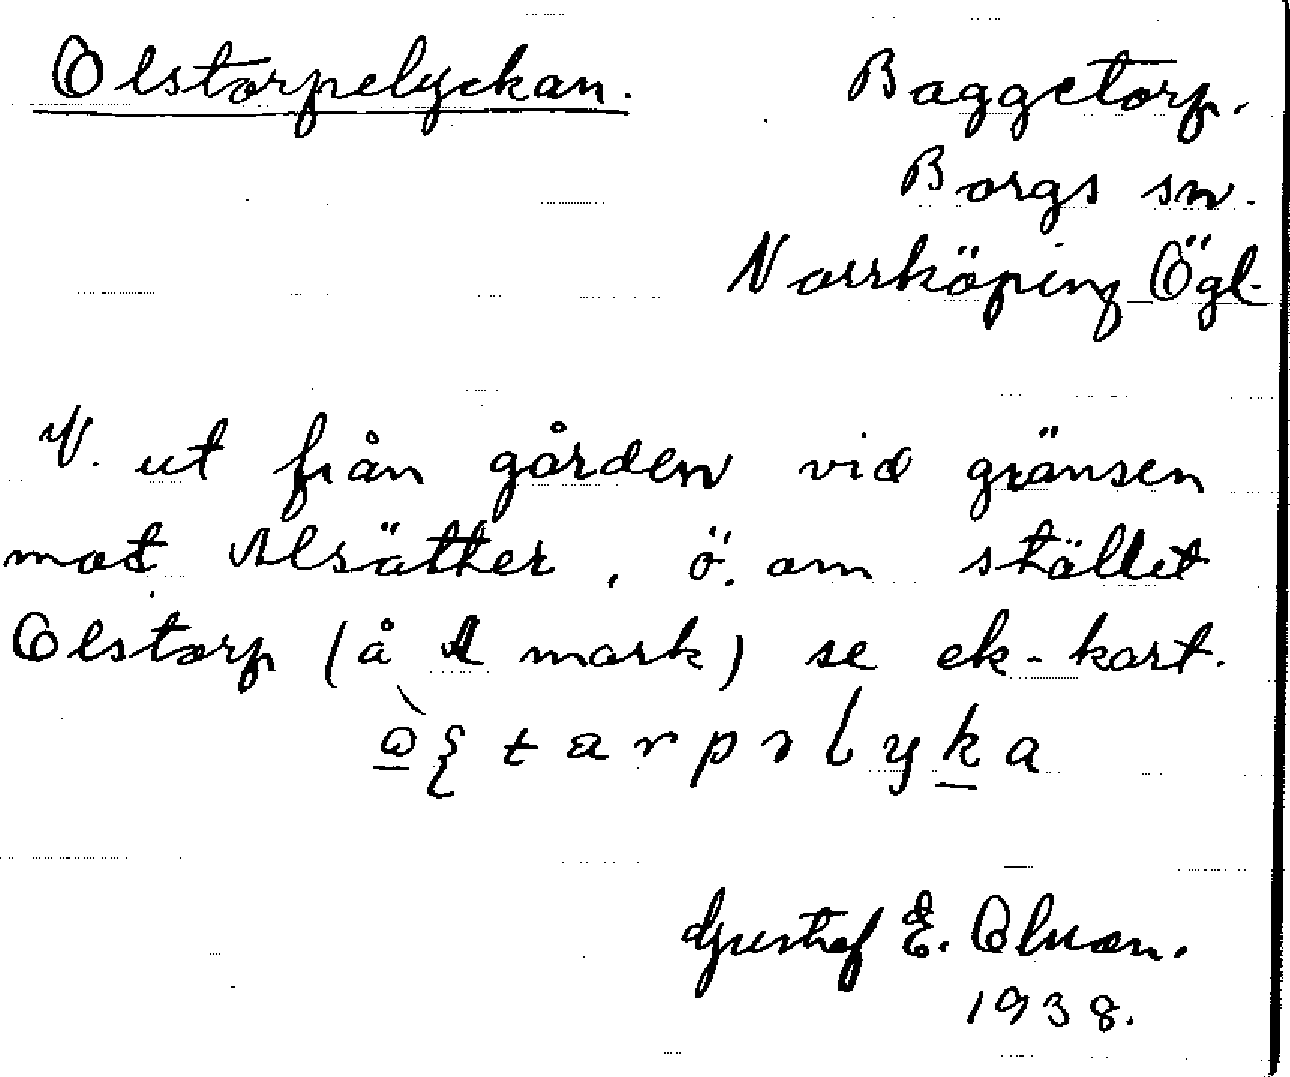 Olstorpelyckan.
Baggetorp.
Borgs sn.
Norrköping Ögl.
V. ut från gården vid gränsen
mot Alsätter, ö. om stället
Olstorp (å A mark) se ek-kart.
Gustaf E. Olson.
1938.